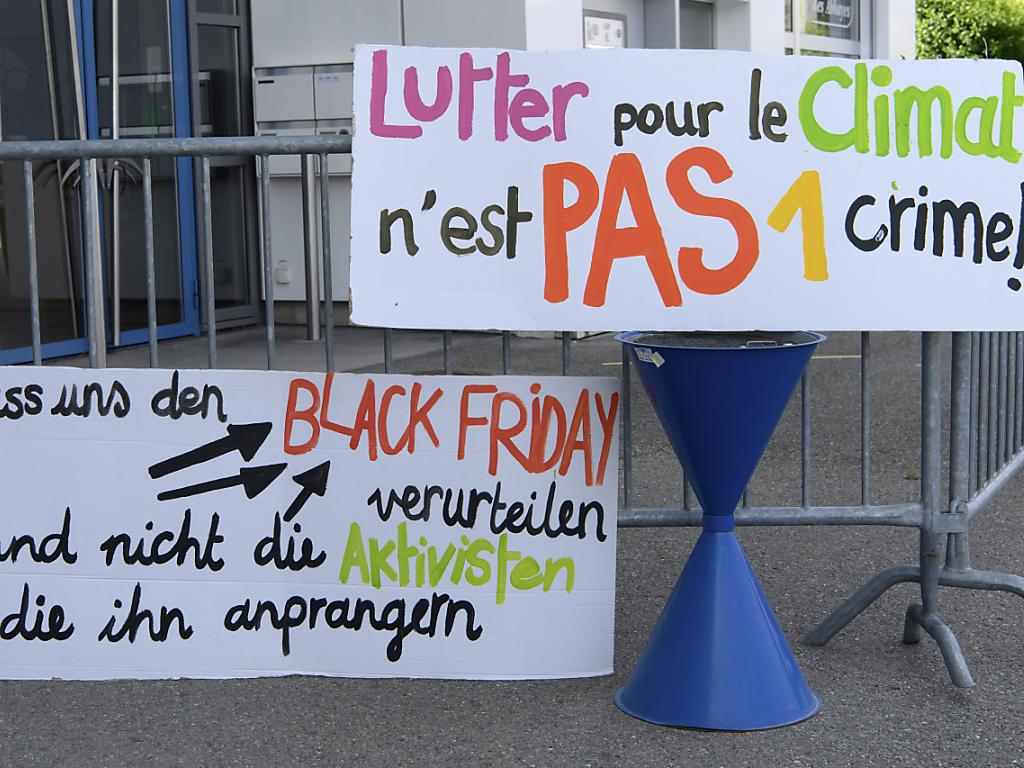 Lutter pour le Climat
n'est PAS 1 crime!
ss uns den BLACK FRIDAY
verurteilen
nd nicht die Aktivisten
die ihn anprangern